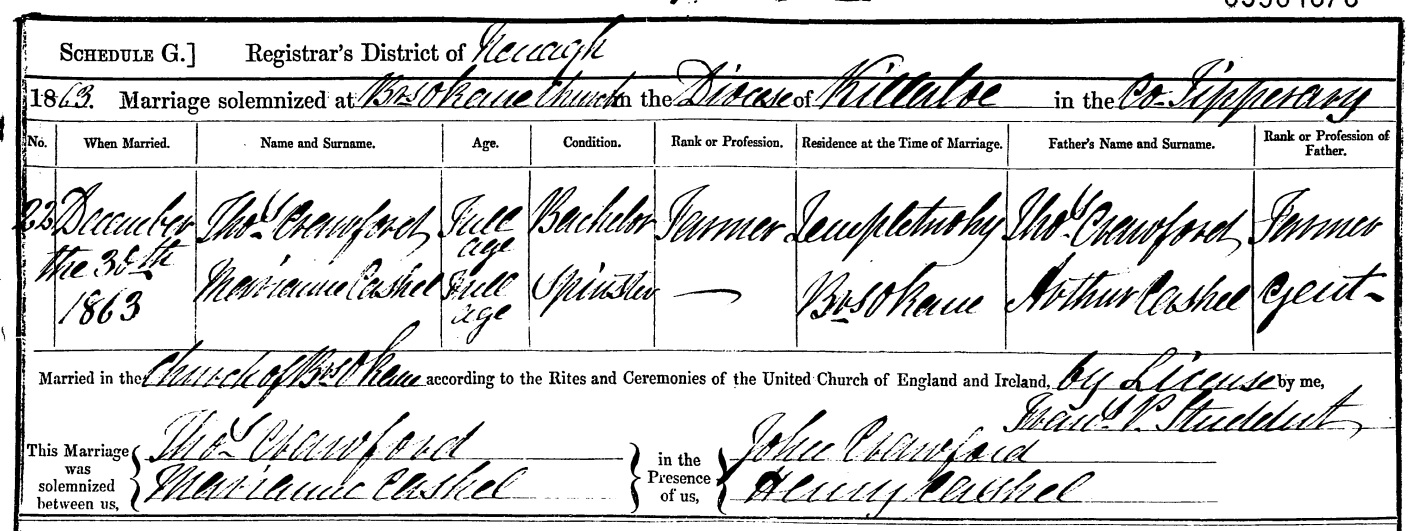 SCHEDULE G.] Registrar's District of Nenagh
1863. Marriage solemnized at Brsokane Church in the Diocese of Killaloe in the Co. Tipperary
No. When Married. Name and Surname. Age. Condition. Rank or Profession. Residence at the Time of Marriage. Father's Name and Surname. Rank or Profession of Father.
23 December the 30th 1863 Thos Crawford Full age Bachelor Farmer Templetuohy Thos Crawford Farmer
Marianne Cashel Full age Spinster — Brsokane Arthur Cashel Gent-
Married in the Church of Brsokane according to the Rites and Ceremonies of the United Church of England and Ireland, by License by me,
Frans P. Studdert
This Marriage was solemnized between us, Thos Crawford in the Presence of us, John Crawford
Marianne Cashel Henry Cashel